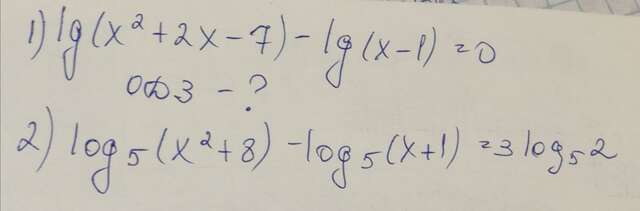 1) lg(x² + 2x - 7) - lg(x-1) = 0
ОДЗ - ?
2) log₅(x² + 8) - log₅(x+1) = 3 log₅2